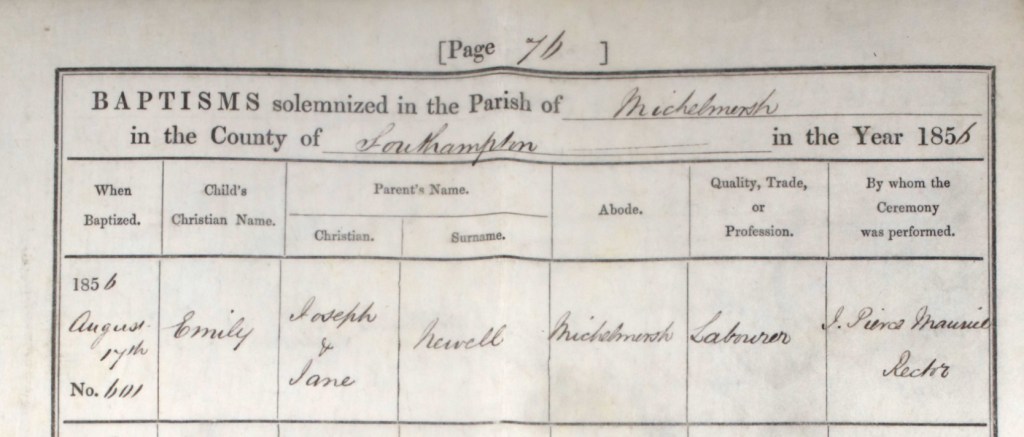 [Page 76 ]
BAPTISMS solemnized in the Parish of Michelmersh
in the County of Southampton in the Year 1856
When Baptized.
Child's Christian Name.
Parent's Name.
Christian.
Surname.
Abode.
Quality, Trade, or Profession.
By whom the Ceremony was performed.
1856
August
17th
No. 601
Emily
Joseph
&
Jane
Newell
Michelmersh
Labourer
J. Pierce Maurice
Rector